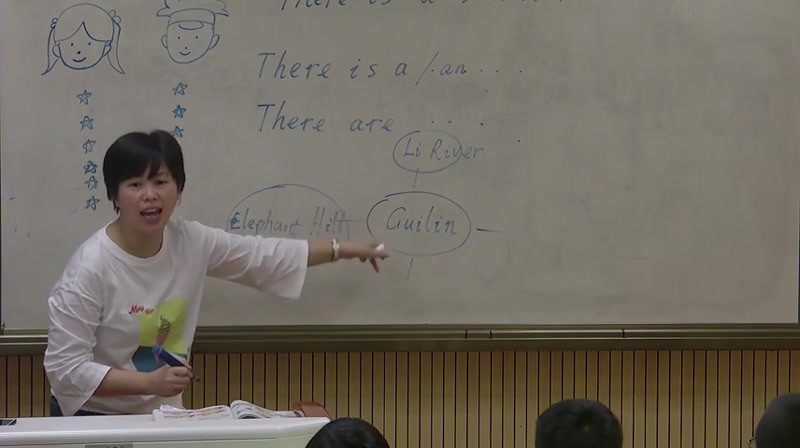 There is a
There is a / an . . .
There are . . .
Li River
Elephant Hill
Guilin